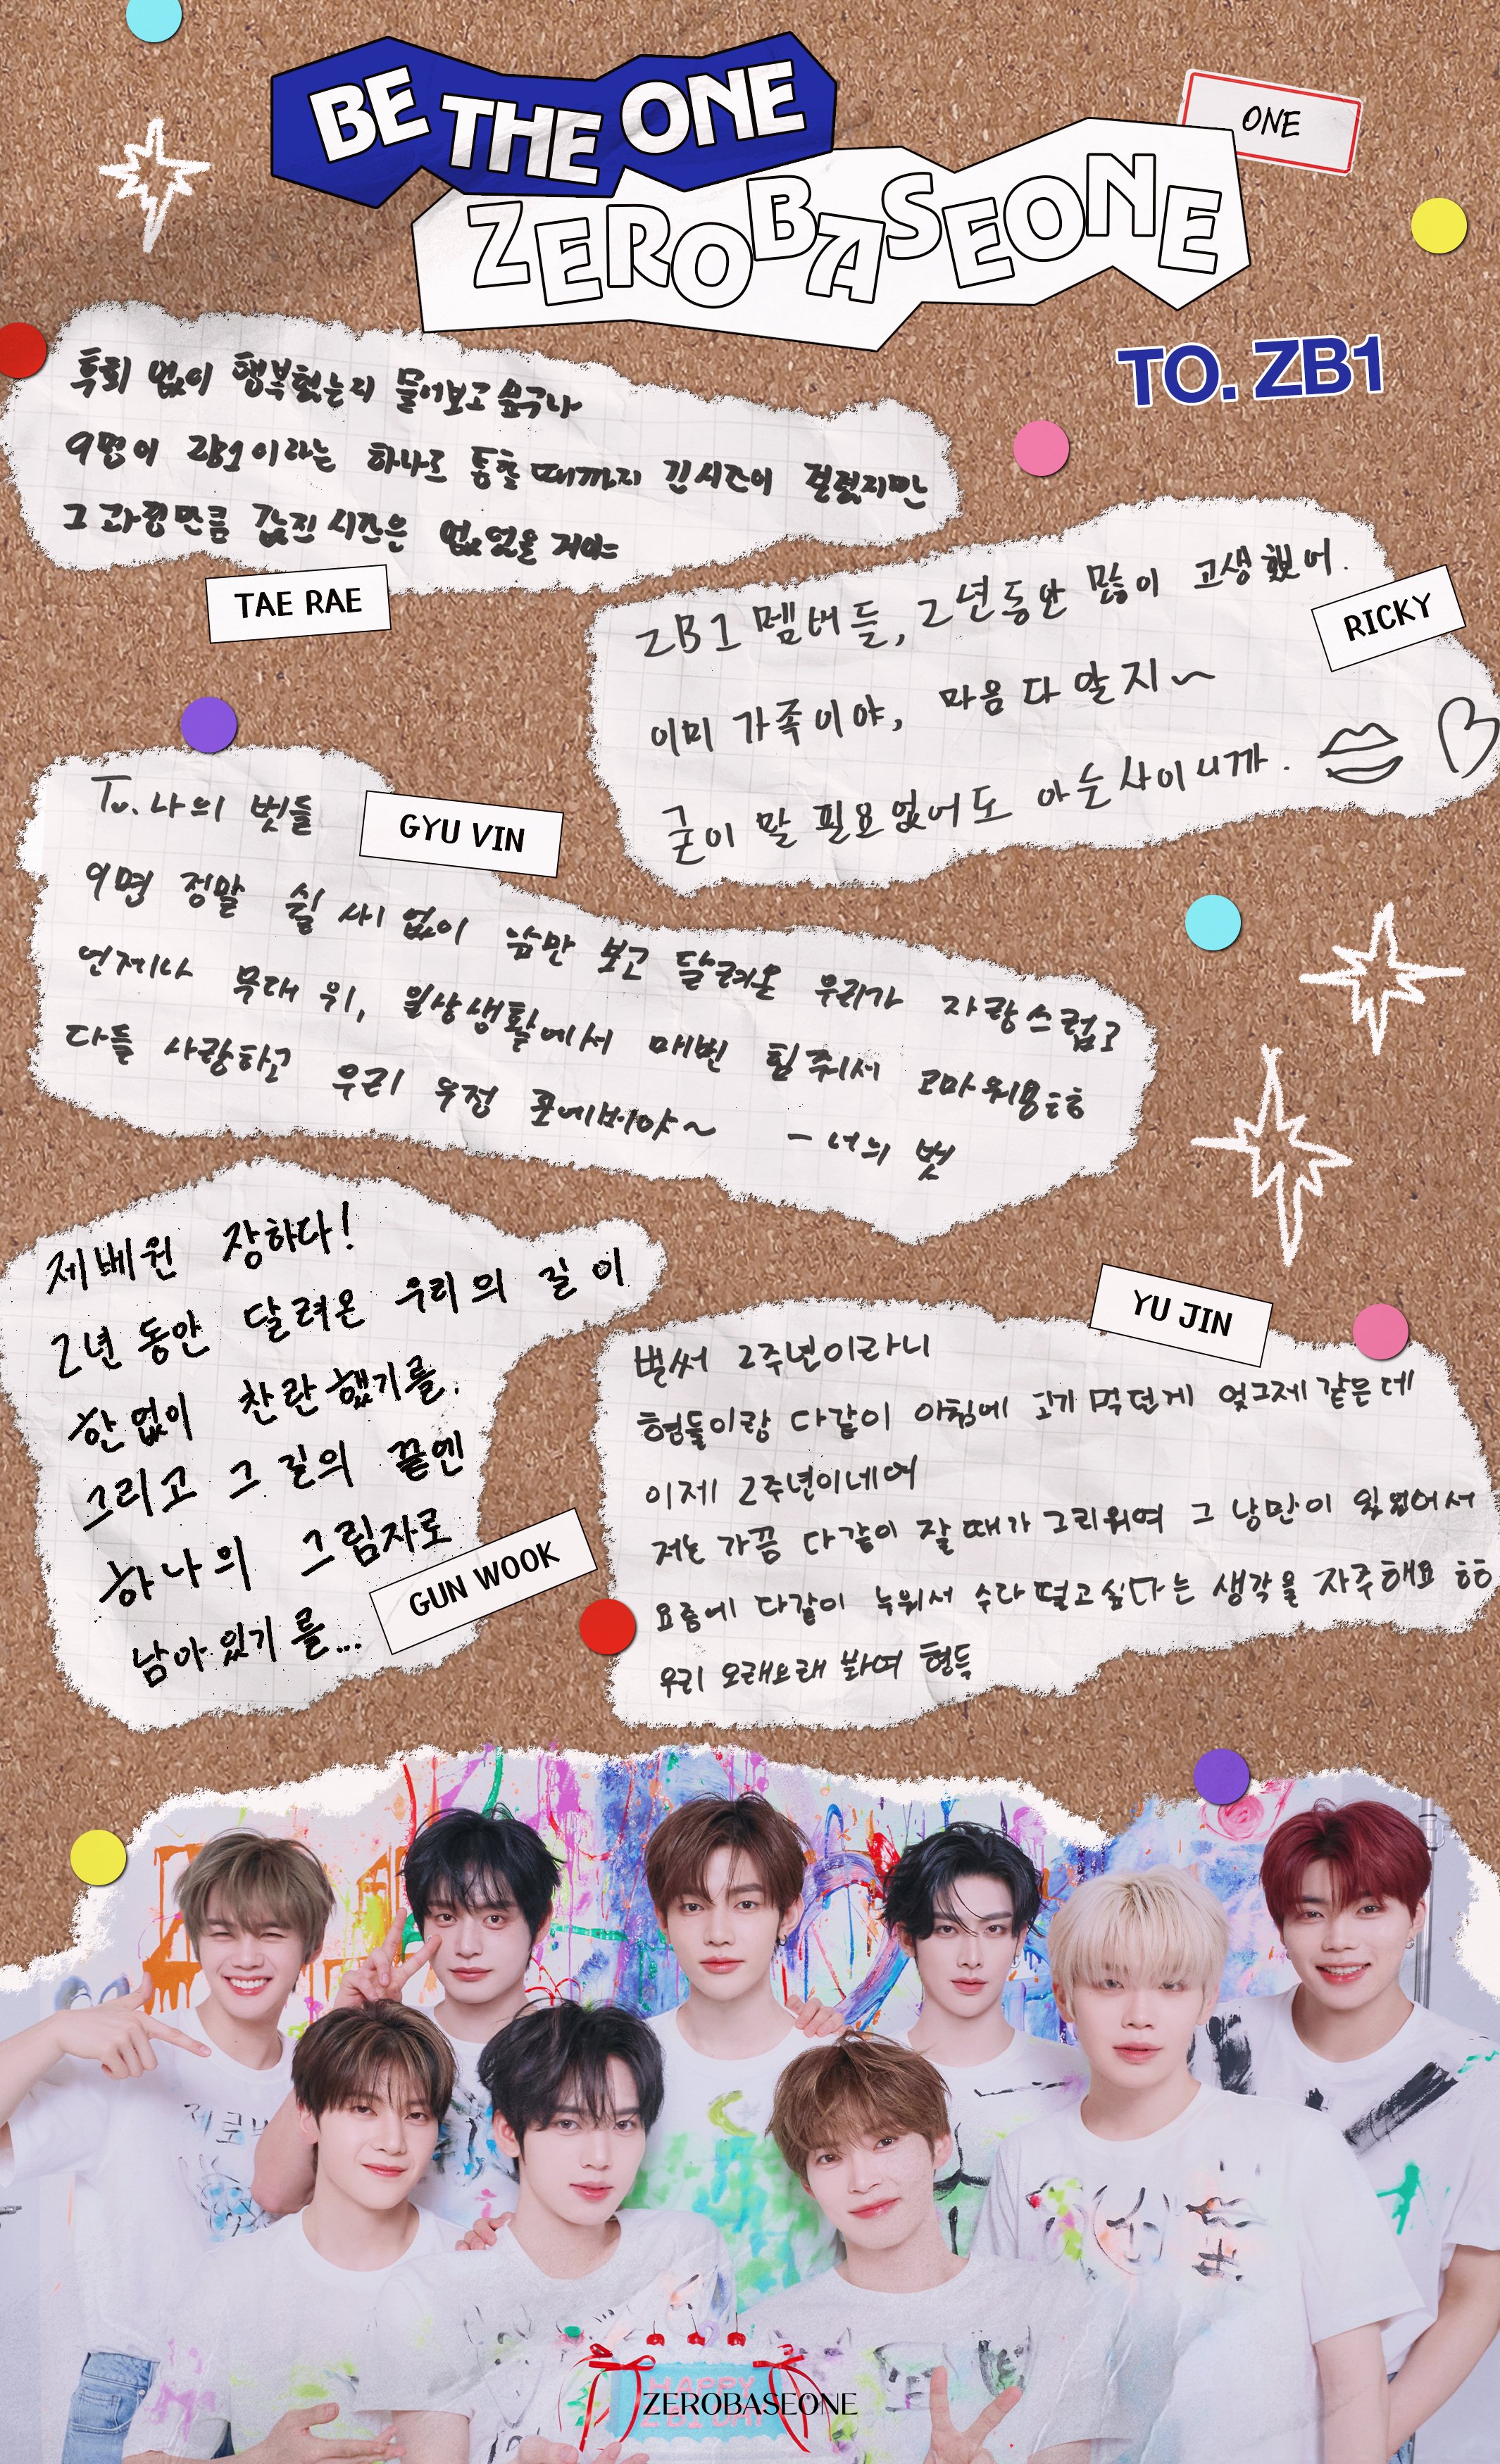 BE THE ONE
ZEROBASEONE
ONE
TO. ZB1
후회 없이 행복했는지 물어보고 싶구나
9명이 ZB1이라는 하나로 통할 때까지 긴 시간이 걸렸지만
그 과정만큼 값진 시간은 없었을 거야
TAE RAE
ZB1 멤버들, 2년동안 많이 고생했어.
이미 가족이야, 마음 다 알지~
굳이 말 필요없어도 아는 사이니까.
RICKY
To. 나의 벗들
GYU VIN
9명 정말 쉴 새 없이 앞만 보고 달려온 우리가 자랑스럽고
언제나 무대 위, 일상생활에서 매번 힘줘서 고마워용ㅎㅎ
다들 사랑하고 우리 우정 포에버야~ - 너의 벗
제베원 장하다!
2년 동안 달려온 우리의 길이
한없이 찬란했기를.
그리고 그 길의 끝엔
하나의 그림자로
남아있기를...
GUN WOOK
YU JIN
벌써 2주년이라니
형들이랑 다같이 아침에 고기 먹던게 엊그제 같은데
이제 2주년이네여
저는 가끔 다같이 잘 때가 그리워여 그 낭만이 있었어서
요즘에 다같이 누워서 수다 떨고싶다는 생각을 자주해요 ㅎㅎ
우리 오래오래 봐여 형들
제로베
HAPPY
ZB1 DAY
ZEROBASEONE